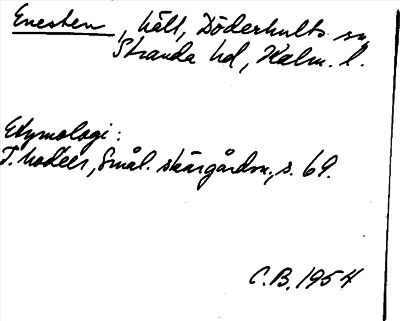 Enesten, häll, Döderhults sn,
Stranda hd, Kalm. l.
Etymologi:
T. Modéer, Smål. skärgårdsn, s. 69.
C.B. 1954